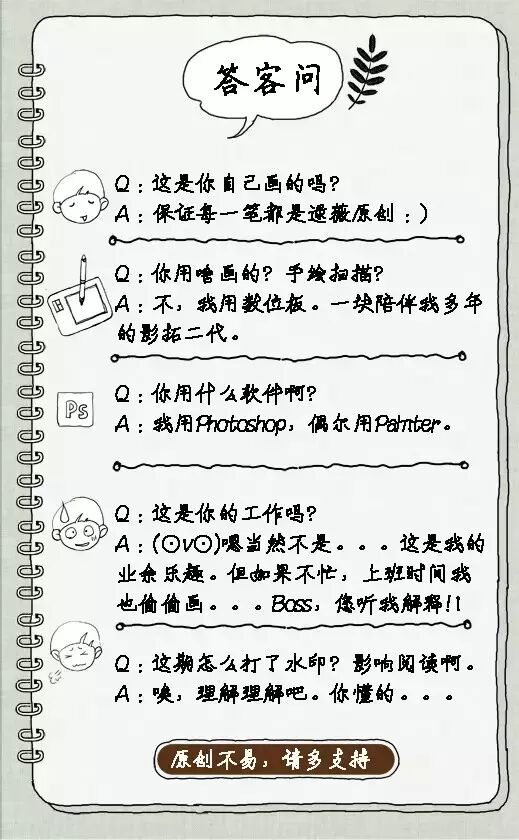 答客问
Q：这是你自己画的吗？
A：保证每一笔都是逆薇原创：)
Q：你用啥画的？手绘扫描？
A：不，我用数位板。一块陪伴我多年
的影拓二代。
Ps
Q：你用什么软件啊？
A：我用Photoshop，偶尔用Painter。
Q：这是你的工作吗？
A：(⊙v⊙)嗯当然不是。。。这是我的
业余乐趣。但如果不忙，上班时间我
也偷偷画。。。Boss，您听我解释!!
Q：这期怎么打了水印？影响阅读啊。
A：唉，理解理解吧。你懂的。。。
原创不易，请多支持